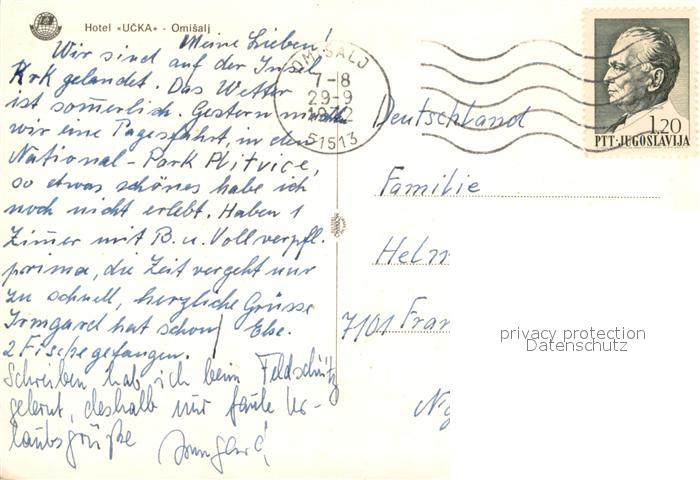 Hotel «UČKA» - Omišalj
Meine Lieben!
Wir sind auf der Insel
Krk gelandet. Das Wetter
ist sommerlich. Gestern machten
wir eine Tagesfahrt, in den
National-Park Plitvice,
so etwas schönes habe ich
noch nicht erlebt. Haben 1
Zimmer mit B. u. Vollverpfl.
prima, die Zeit vergeht nur
zu schnell, herzliche Grüsse
Irmgard hat schon / Else.
2 Fische gefangen.
Schreiben hab ich beim Feldschütz
gelernt, deshalb nur faule Ur-
laubsgrüße Irmgard!
OMIŠALJ
7-8
29-9
1972
51513
1.20
PTT·JUGOSLAVIJA
Deutschland
Familie
Helm
7101 Fran
privacy protection
Datenschutz